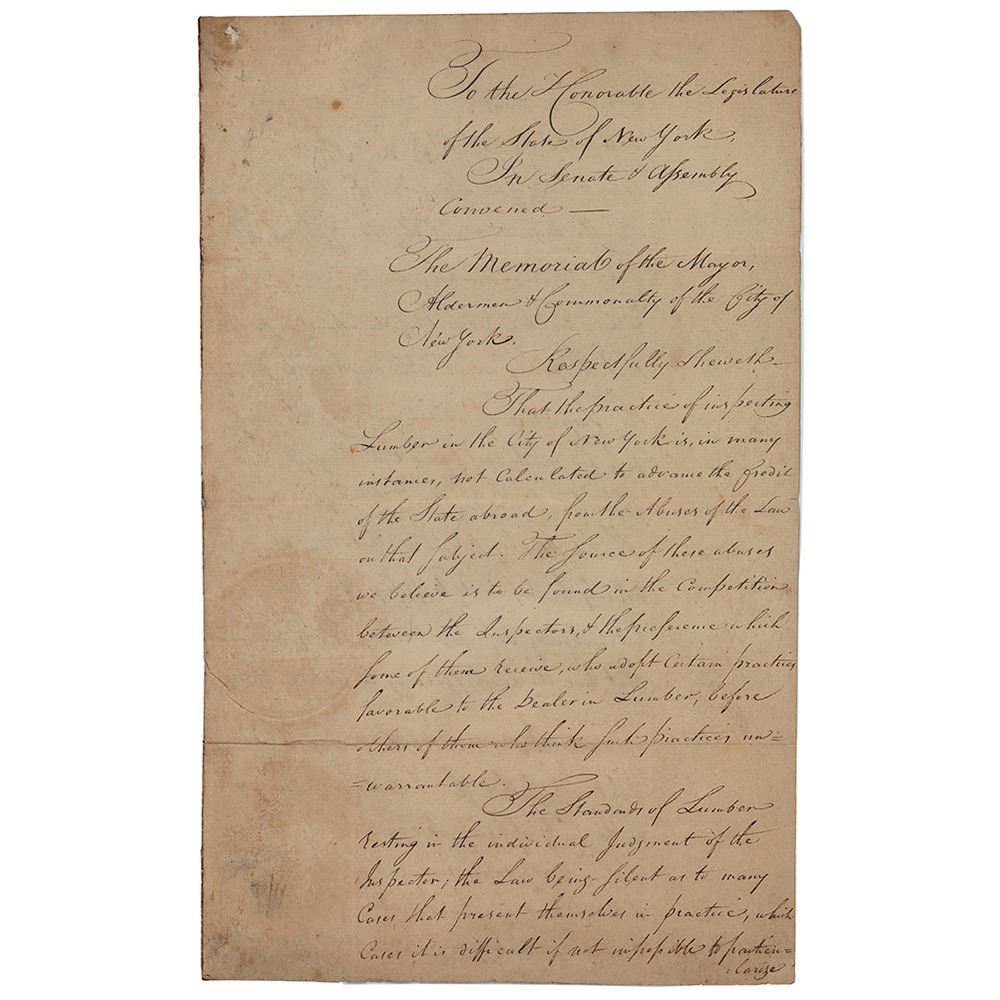 To the Honorable the Legislature
of the State of New York,
In Senate & Assembly
Convened —
The Memorial of the Mayor,
Aldermen & Commonalty of the City of
New York.
Respectfully Sheweth —
That the practice of inspecting
Lumber in the City of New York is, in many
instances, not Calculated to advance the Credit
of the State abroad, from the Abuses of the Law
on that Subject. The Source of these abuses
we believe is to be found in the Competition
between the Inspectors, & the preference which
Some of them receive, who adopt Certain practices
favorable to the Dealer in Lumber, before
others of them who think Such practices un=
=warrantable.
The Standards of Lumber
resting in the individual Judgment of the
Inspector; the Law being Silent as to many
Cases that present themselves in practice, which
Cases it is difficult if not impossible to particu=
=larize